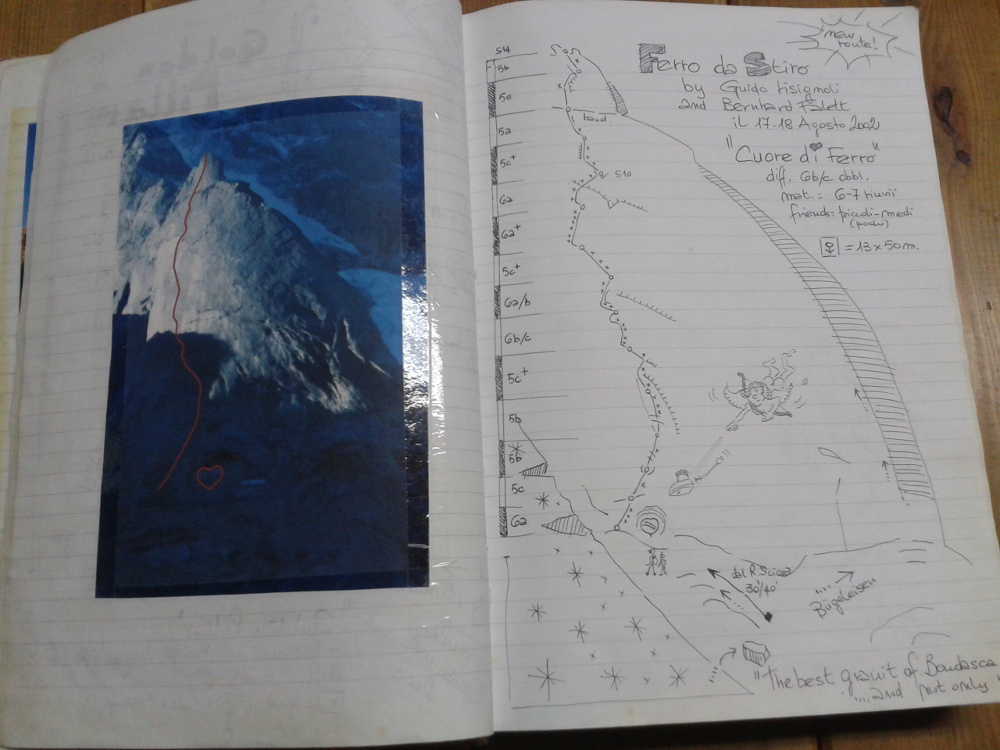 new
route!
Ferro da Stiro
by Guido Lisignoli
and Bernhard Falett
il 17-18 Agosto 2002
"Cuore di Ferro"
diff. 6b/c obbl.
mat.: 6-7 rinvii
friends: piccoli-medi
(pochi)
= 13 x 50m.
S14
5b
5c
band
5a
5c+
S10
6a
6a+
5c+
6a/b
6b/c
5c+
5b
5b
5c
6a
dal R. Sciora
30'/40'
Bügeleisen
"The best granit of Bondasca
....and not only"